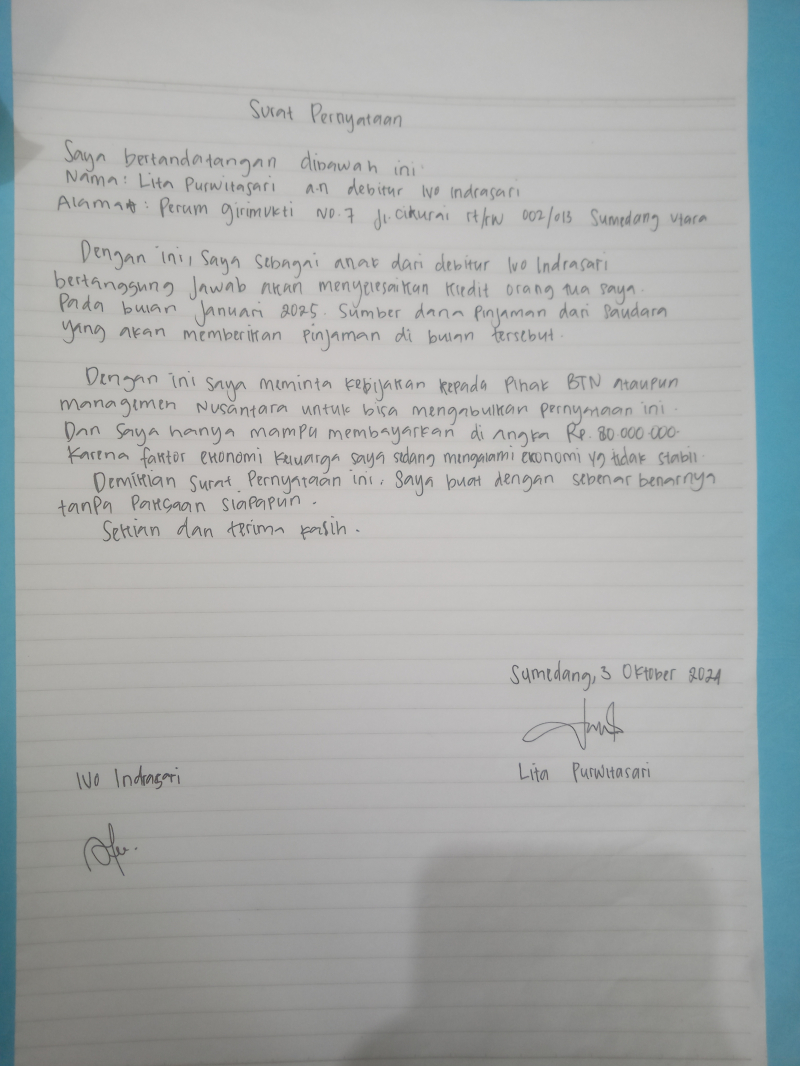 Surat Pernyataan
Saya bertandatangan dibawah ini
Nama : Lita Purwitasari a.n debitur Ivo Indrasari
Alamat : Perum girimukti No.7 jl.cikurai rt/rw 002/013 Sumedang utara
Dengan ini, Saya sebagai anak dari debitur Ivo Indrasari
bertanggung Jawab akan menyelesaikan kredit orang tua saya.
Pada bulan Januari 2025. Sumber dana Pinjaman dari saudara
yang akan memberikan pinjaman di bulan tersebut.
Dengan ini saya meminta kebijakan kepada Pihak BTN ataupun
managemen Nusantara untuk bisa mengabulkan pernyataan ini.
Dan saya hanya mampu membayarkan di angka Rp. 80.000.000-
Karena faktor ekonomi keluarga saya sedang mengalami ekonomi yg tidak stabil.
Demikian Surat Pernyataan ini, Saya buat dengan sebenar benarnya
tanpa Paksaan siapapun.
Sekian dan terima kasih.
Sumedang, 3 Oktober 2024
Lita Purwitasari
Ivo Indrasari